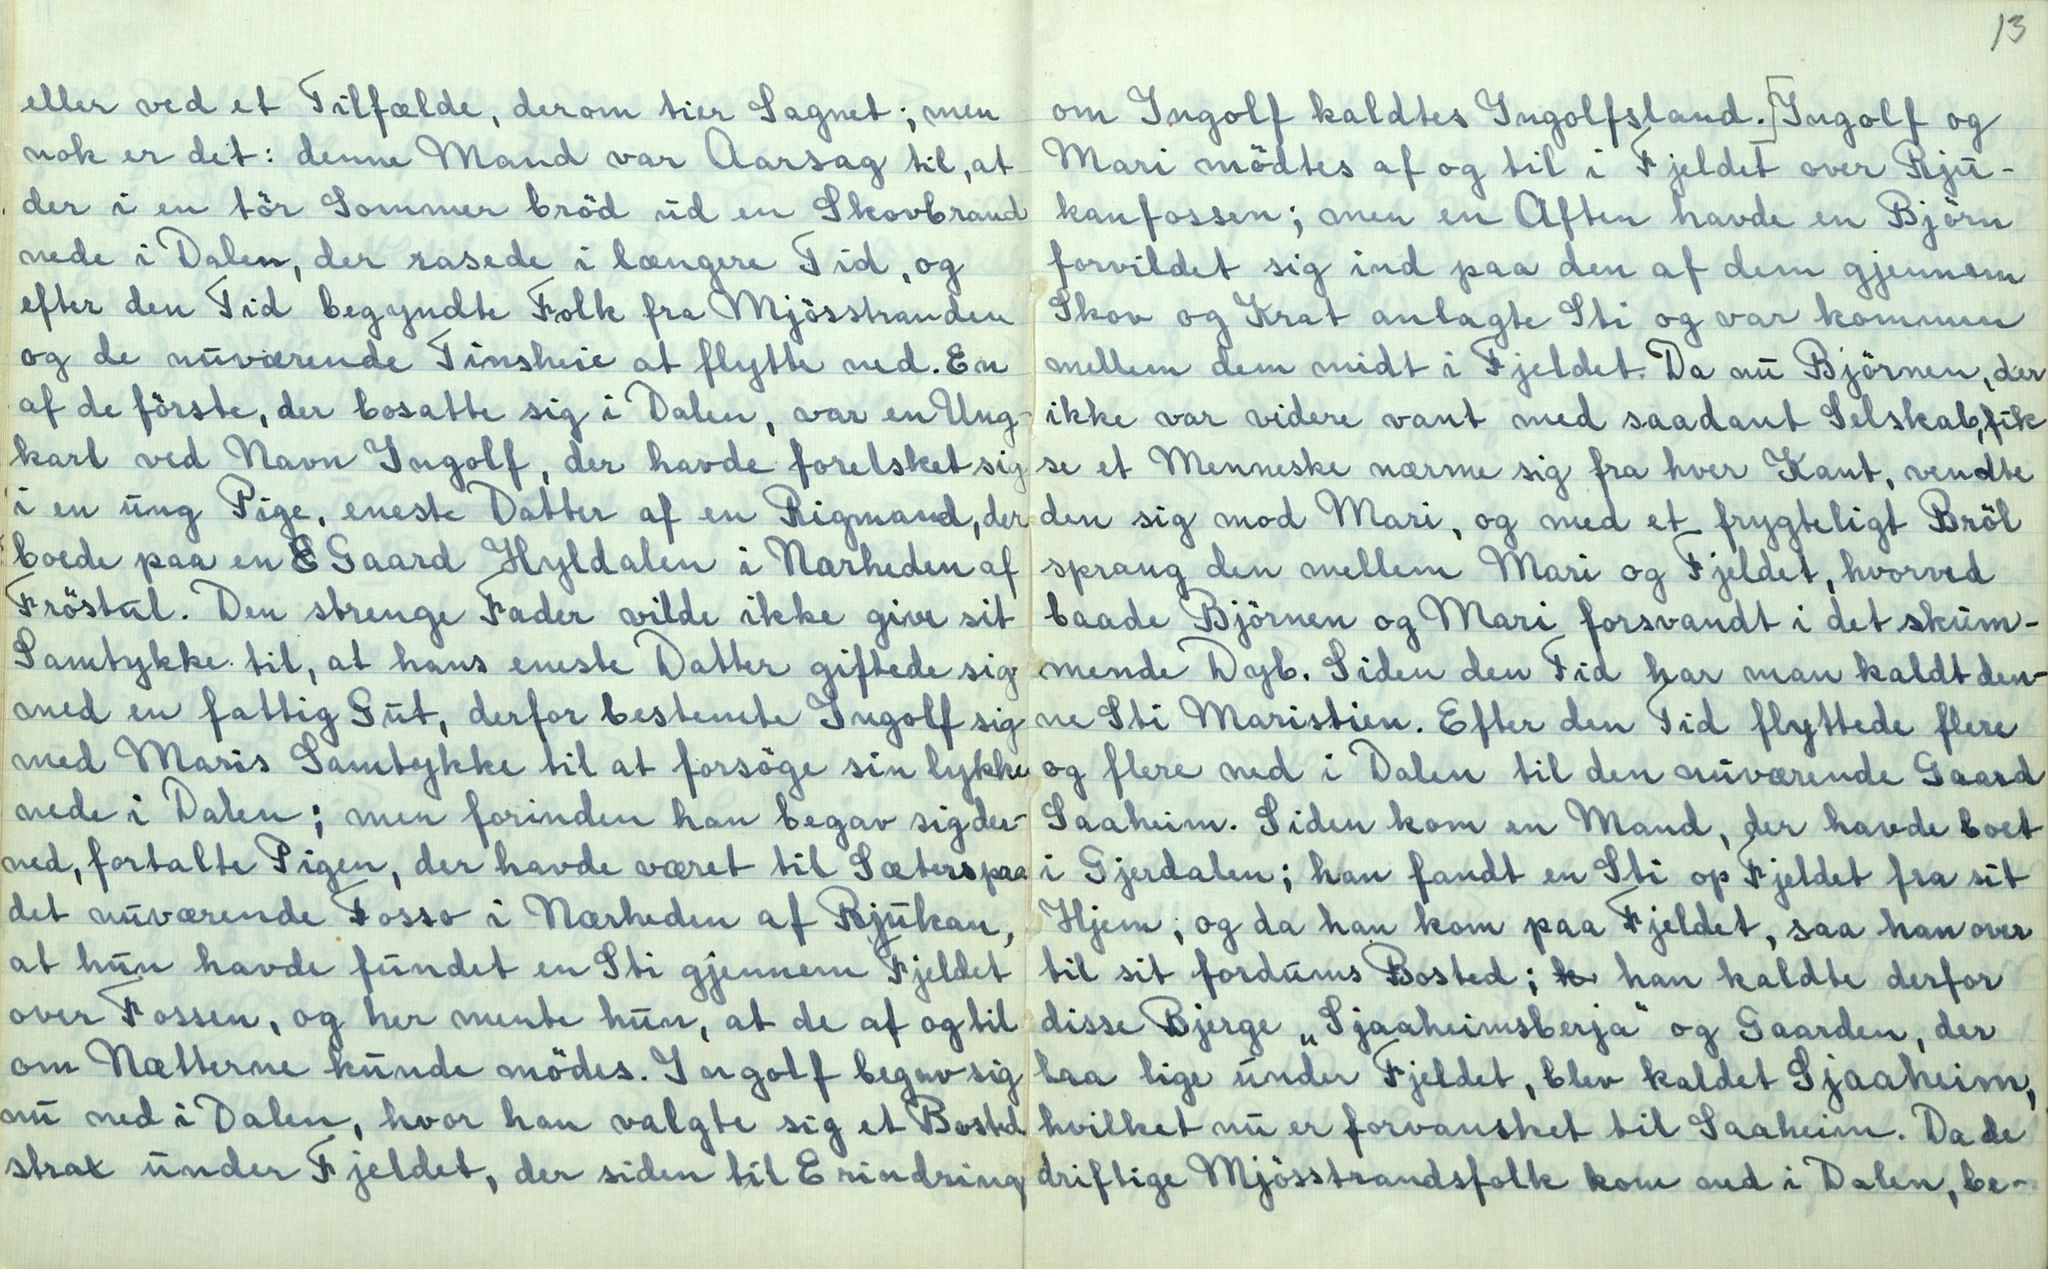 eller ved et Tilfælde, derom tier Sagnet; men
nok er det: denne Mand var Aarsag til, at
der i en tör Sommer bröd ud en Skovbrand
nede i Dalen, der rasede i længere Tid, og
efter den Tid begyndte Folk fra Mjösstranden
og de nuværende Tinsheie at flytte ned. En
af de förste, der bosatte sig i Dalen, var en Ung-
karl ved Navn Ingolf, der havde forelsket sig
i en ung Pige, eneste Datter af en Rigmand, der
boede paa en E Gaard Hyldalen i Nærheden af
Fröstul. Den strenge Fader vilde ikke give sit
Samtykke til, at hans eneste Datter giftede sig
med en fattig Gut, derfor bestemte Ingolf sig
med Maris Samtykke til at forsöge sin lykke
nede i Dalen; men forinden han begav sig der-
ned, fortalte Pigen, der havde været til Sæters paa
det nuværende Fosso i Nærheden af Rjukan,
at hun havde fundet en Sti gjennem Fjeldet
over Fossen, og her mente hun, at de af og til
om Nætterne kunde mödes. Ingolf begav sig
nu ned i Dalen, hvor han valgte sig et Bosted
strax under Fjeldet, der siden til Erindring
13
om Ingolf kaldtes Ingolfsland. [Ingolf og
Mari mödtes af og til i Fjeldet over Rju-
kanfossen; men en Aften havde en Björn
forvildet sig ind paa den af dem gjennem
Skov og Krat anlagte Sti og var kommen
mellem dem midt i Fjeldet. Da nu Björnen, der
ikke var videre vant med saadant Selskab, fik
se et Menneske nærme sig fra hver Kant, vendte
den sig mod Mari, og med et frygteligt Bröl
sprang den mellem Mari og Fjeldet, hvorved
baade Björnen og Mari forsvandt i det skum-
mende Dyb. Siden den Tid har man kaldt den-
ne Sti Maristien. Efter den Tid flyttede flere
og flere ned i Dalen til den nuværende Gaard
Saaheim. Siden kom en Mand, der havde boet
i Gjerdalen; han fandt en Sti op Fjeldet fra sit
Hjem; og da han kom paa Fjeldet, saa han over
til sit fordums Bosted; han kaldte derfor
disse Bjerge „Sjaaheimsberja" og Gaarden, der
laa lige under Fjeldet, blev kaldet Sjaaheim,
hvilket nu er forvansket til Saaheim. Da de
driftige Mjösstrandsfolk kom ned i Dalen, be-